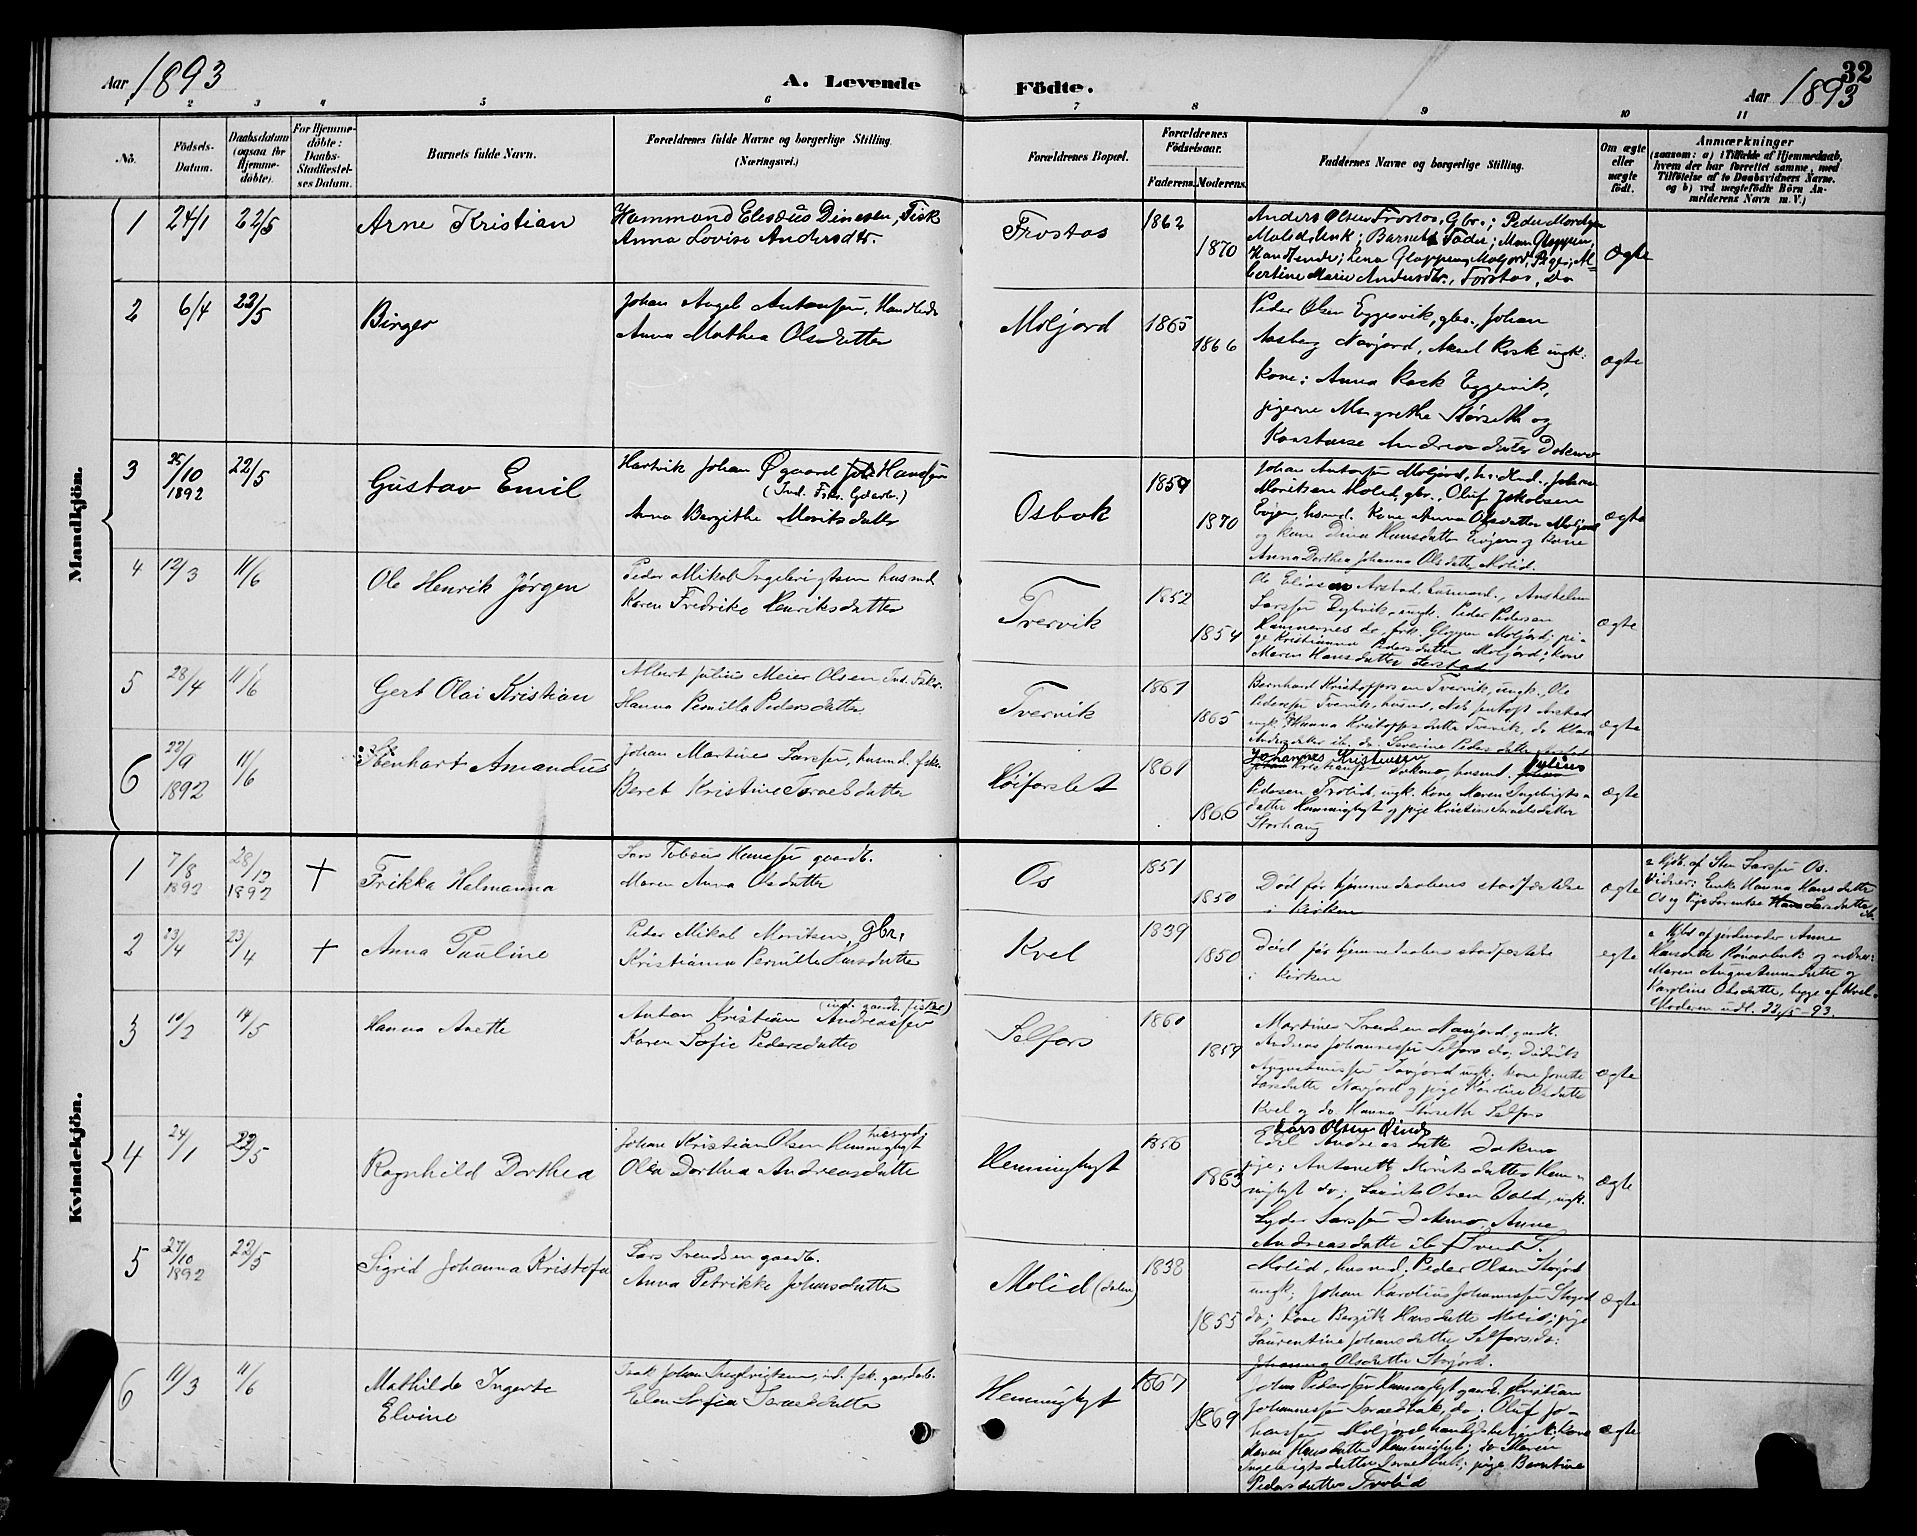 Aar 1893
A. Levende
Födte.
32
Aar 1893
1 2 3 4 5 6 7 8 9 10 11
No.
Födsels-Datum.
Daabsdatum (ogsaa for Hjemme-döbte).
For Hjemme-döbte: Daabs-Stadfæstel-ses Datum.
Barnets fulde Navn.
Forældrenes fulde Navne og borgerlige Stilling. (Næringsvei.)
Forældrenes Bopæl.
Forældrenes Födselsaar.
Faderens. Moderens.
Faddernes Navne og borgerlige Stilling.
Om ægte eller uægte födt.
Anmærkninger
(saasom: a) i Tilfælde af Hjemmedaab, hvem der har forrettet samme, med Tilföielse af to Daabsvidners Navne. og b) ved uægtefödte Börn An-melderens Navn m. V.)
Mandkjön.
1 24/1 22/5 Arne Kristian
Hammond Elesæus Dinesen, Fisk
Anna Lovise Andersdtr.
Frostos 1862 1870
Anders Olsen Frostos, Gbr.; Peder
Barnets Fader;
Handlende; Lena Gloppen, Moljord, Pige; Al-
bertine Marie Andersdtr., Forstos, Do
Ægte
2 6/4 22/5 Birger
Johan Angel Antonsen, Handlende
Anna Mathea Olsdatter
Moljord 1865 1866
Peder Olsen Eggesvik, gbr. Johan
Aasberg Navjord, Aksel Rosk ungk.
kone: Anna Rosk Eggesvik,
pigerne Margrethe Storseth og
Konstanse Andreasdatter Dokmo
ægte
3 25/10 1892 22/5 Gustav Emil
Hartvik Johan Øgaard Hansen
(Ind. Fsk. Gdarb.)
Anna Bergithe Moritsdatter
Osbak 1859 1870
Johan Antonsen Moljord, handlend., Johan
Moritsen Molid, gbr., Oluf Jakobsen
Evjen husmd. Kone Anna Olsdatter Moljord
og kone Dina Hansdatter Evjen og kone
Anna Dorthea Johanna Olsdatter Molid.
ægte
4 12/3 11/6 Ole Henrik Jörgen
Peder Mikal Ingebrigtsen husmd
Karen Fredrike Henriksdatter
Tvervik 1852 1854
Ole Eliasen Arstad, husmand., Anshelm
Larssen Dybvik, ungk. Peder Pedersen
Hamnernes do, frk. Gloppen Moljord, pi-
ge Kristianna Pedersdatter Moljord; kone
Maren Hansdatter Arstad
ægte
5 28/4 11/6 Gert Olai Kristian
Albert Julius Meier Olsen Ind. Fskr.
Hanna Pernille Pedersdatter
Tvervik 1867 1865
Bernhard Kristoffersen Tvervik, ungk., Ole
Pedersen Tvervik, husmd,
ungk Hanna Kristoffersdatter Tvervik, do Klara
Andersdatter ib. do Severine Pedersdatter Arstad
ægte
6 22/9 1892 11/6 Stenhart Amandus
Johan Martinus Larssen, husmd. fsk.
Beret Kristine Israelsdatter
Høiforslet 1861 1866
Johannes Kristensen
Dokmo, husmd. Julius
Pedersen Trolid, ungk. kone Maren Ingebrigts-
datter Hemmingbygt og pige Kristine Israelsdatter
Storhaug
ægte
Kvindekjön.
1 7/8 1892 28/12 1892 + Frikka Helmanna
Lars Tobias Hanssen gaardb.
Maren Anna Olsdatter
Os 1851 1850
Död för hjemmedaabens stadfæstelse
i kirken
ægte
Hjdb. af Sten Larssen Os.
Vidner: Enke Hanna Hansdatter
Os og Pige Lorentse Larsdatter ib.
2 23/4 23/4 + Anna Pauline
Peder Mikal Moritsen, gbr.
Kristianna Pernille Larsdatter
Kvel 1839 1850
Död för hjemmedaabens stadfæstelse
i kirken
ægte
Hjbd af jordemoder Anne
Hansdatter og vidner:
Maren Augustinusdatter og
Karoline Olsdatter, begge af Kvel.
Moderen udl. 22/5-93.
3 10/2 14/5 Hanna Anette
Anton Kristian Andreassen (ind. gaardb. fisker)
Karen Sofie Pedersdatter
Selfors 1860 1859
Martinus Svendsen Navjord, gaardb.
Andreas Johannessen Selfors do, Didrik
Augustinussen Navjord ungk. kone Jonette
Larsdatter Navjord og pige Karoline Olsdatter
Kvel og do Hanna Storseth Selfors
ægte
4 24/1 22/5 Ragnhild Dorthea
Johan Kristian Olsen Hemmingbygt husmd
Olea Dorthea Andreasdatter
Hemmingbygt 1856 1863
Lars Olsen
Andreasdatter Dokmo
pige; Antonette Moritsdatter Hem-
mingbygt do; Laurits Olsen Vold, ungk.
Lyder Larssen Dokmo, Anne
Andreasdatter ib.
ægte
5 27/10 1892 22/5 Sigrid Johanna Kristofa
Lars Svendsen gaardb.
Anna Petrikke Johansdatter
Molid (dalen) 1838 1855
Svend S.
Molid, husmd. Peder Olsen Storjord
ungk; Johan Karolius Johannessen Storjord
do; kone Bergithe Hansdatter Molid; pige
Laurentine Johansdatter Selfors do:
Johanna Olsdatter Storjord.
ægte
6 11/3 11/6 Mathilde Ingerte
Elvine
Isak Johan Ingebrigtsen, ind. fsk. gaardb.
Elen Sofia Israelsdatter
Hemmingbygt 1867 1869
Johan Pedersen Hemmingbygt gaardb. Kristian
Johannessen Israelsbak, do; Oluf Jo-
hansen Moljord handelsbetjent; Kone
Hanna Hansdatter Hemmingbygt; do Maren
Ingebrigtsdatter Israelbak; pige Berntine
Pedersdatter Trolid
ægte